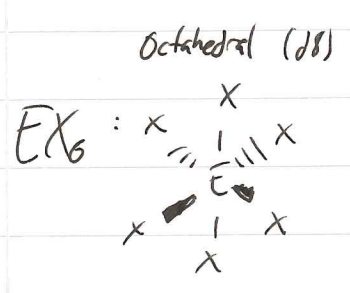 Octahedral (d8)
X
EX₆ : X X
E
X X
X